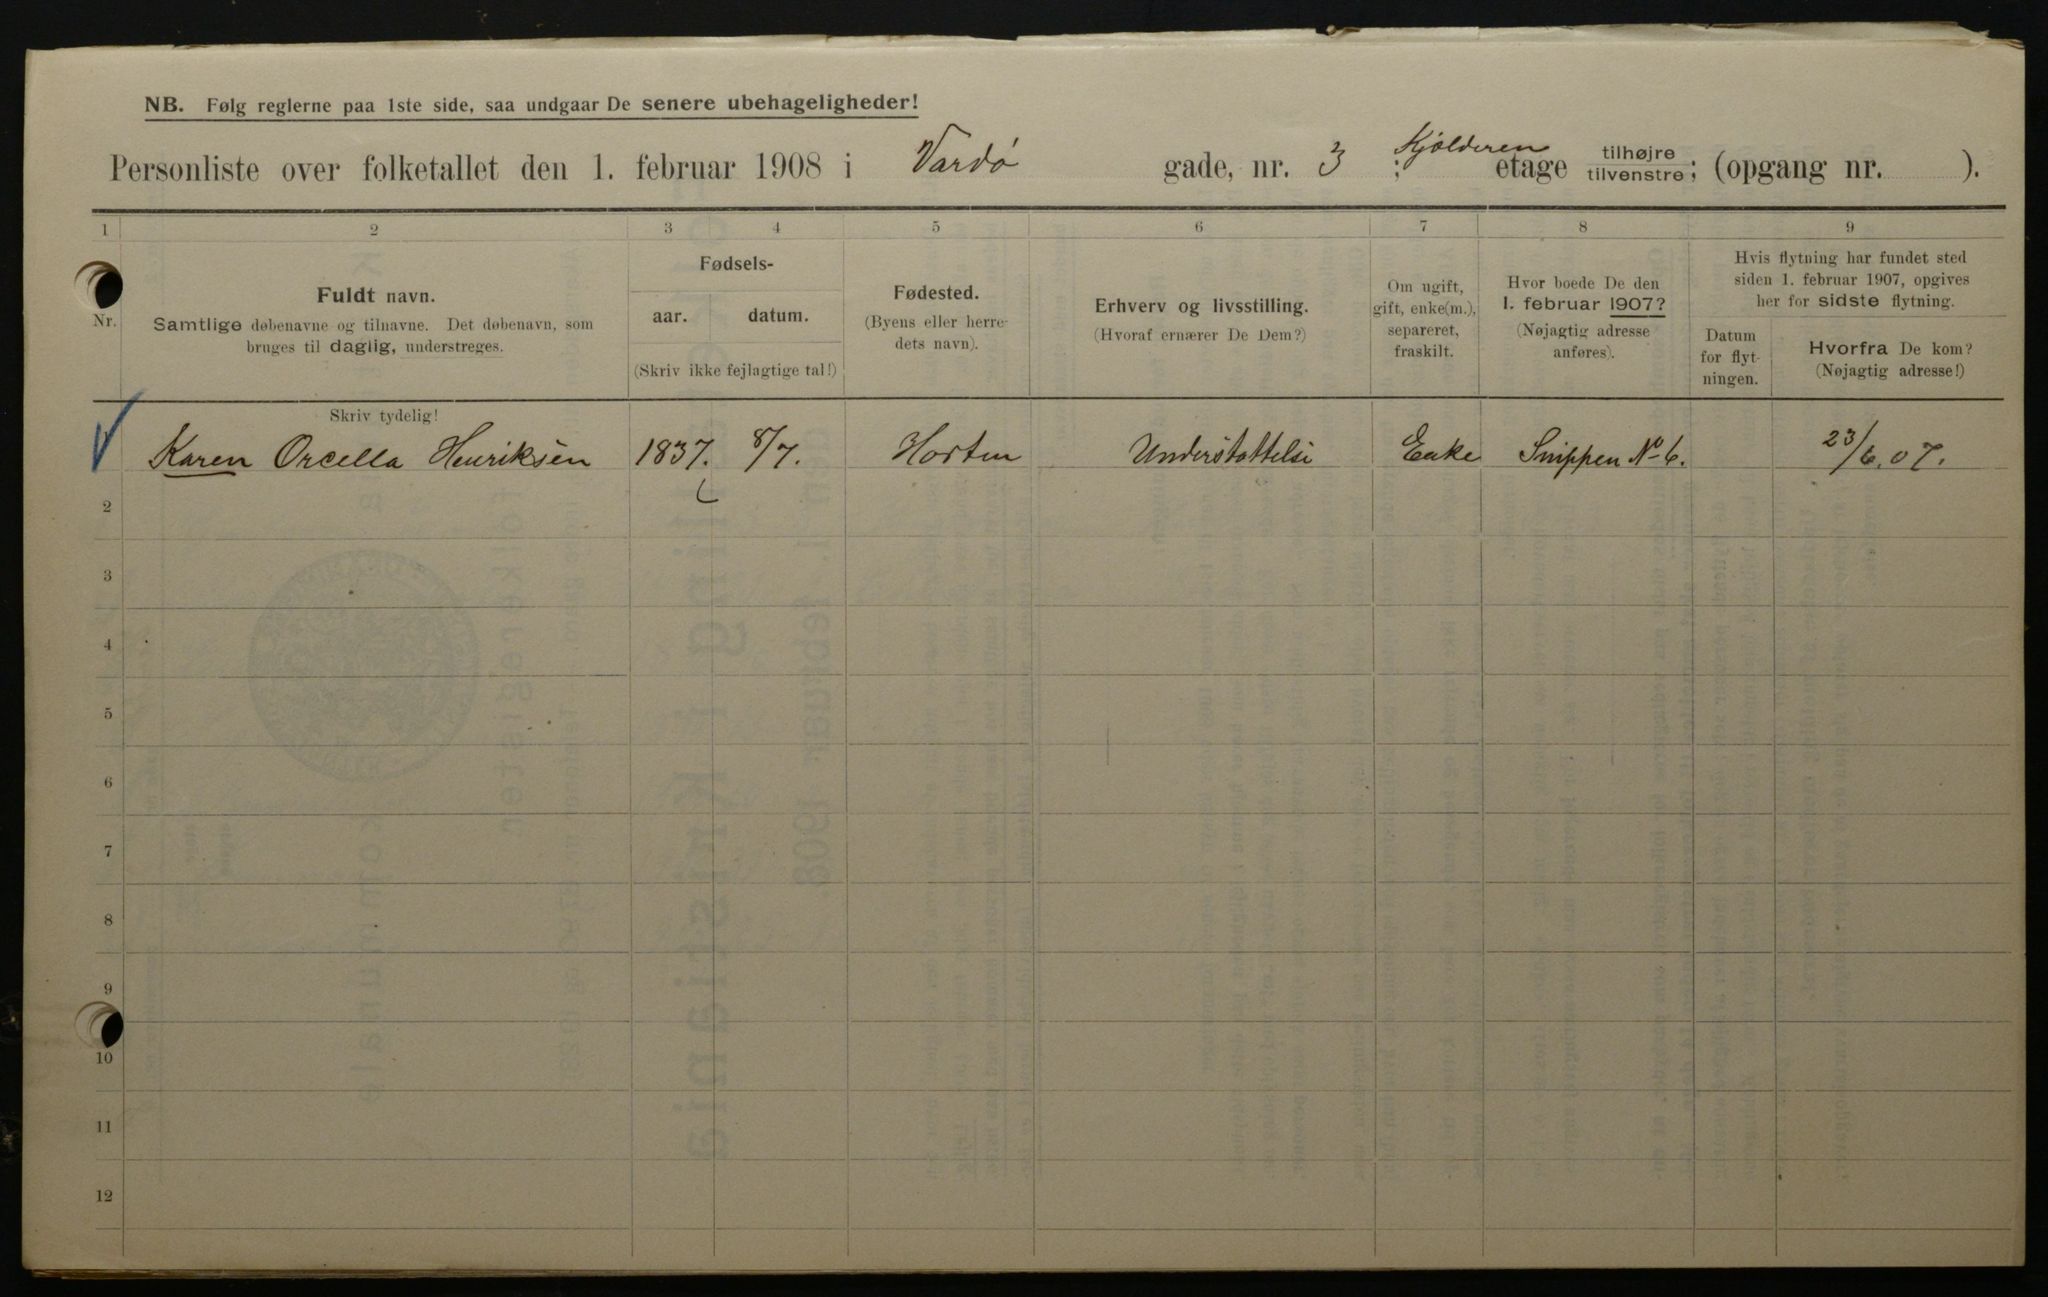 NB. Følg reglerne paa 1ste side, saa undgaar De senere ubehageligheder!
Personliste over folketallet den 1. februar 1908 i Vardø gade, nr. 3 ; Kjælderen etage tilhøjre tilvenstre; (opgang nr. ).
1 2 3 4 5 6 7 8 9
Nr.
Fuldt navn.
Samtlige døbenavne og tilnavne. Det døbenavn, som
bruges til daglig, understreges.
Fødsels-
aar. datum.
(Skriv ikke fejlagtige tal!)
Fødested.
(Byens eller herre-
dets navn).
Erhverv og livsstilling.
(Hvoraf ernærer De Dem?)
Om ugift,
gift, enke(m.),
separeret,
fraskilt.
Hvor boede De den
1. februar 1907?
(Nøjagtig adresse
anføres).
Hvis flytning har fundet sted
siden 1. februar 1907, opgives
her for sidste flytning.
Datum
for flyt-
ningen.
Hvorfra De kom?
(Nøjagtig adresse!)
Skriv tydelig!
1 Karen Orcella Henriksen 1837. 8/7. Horten Understøttelse Enke Snippen No 6. 23/6.07.
2
3
4
5
6
7
8
9
10
11
12